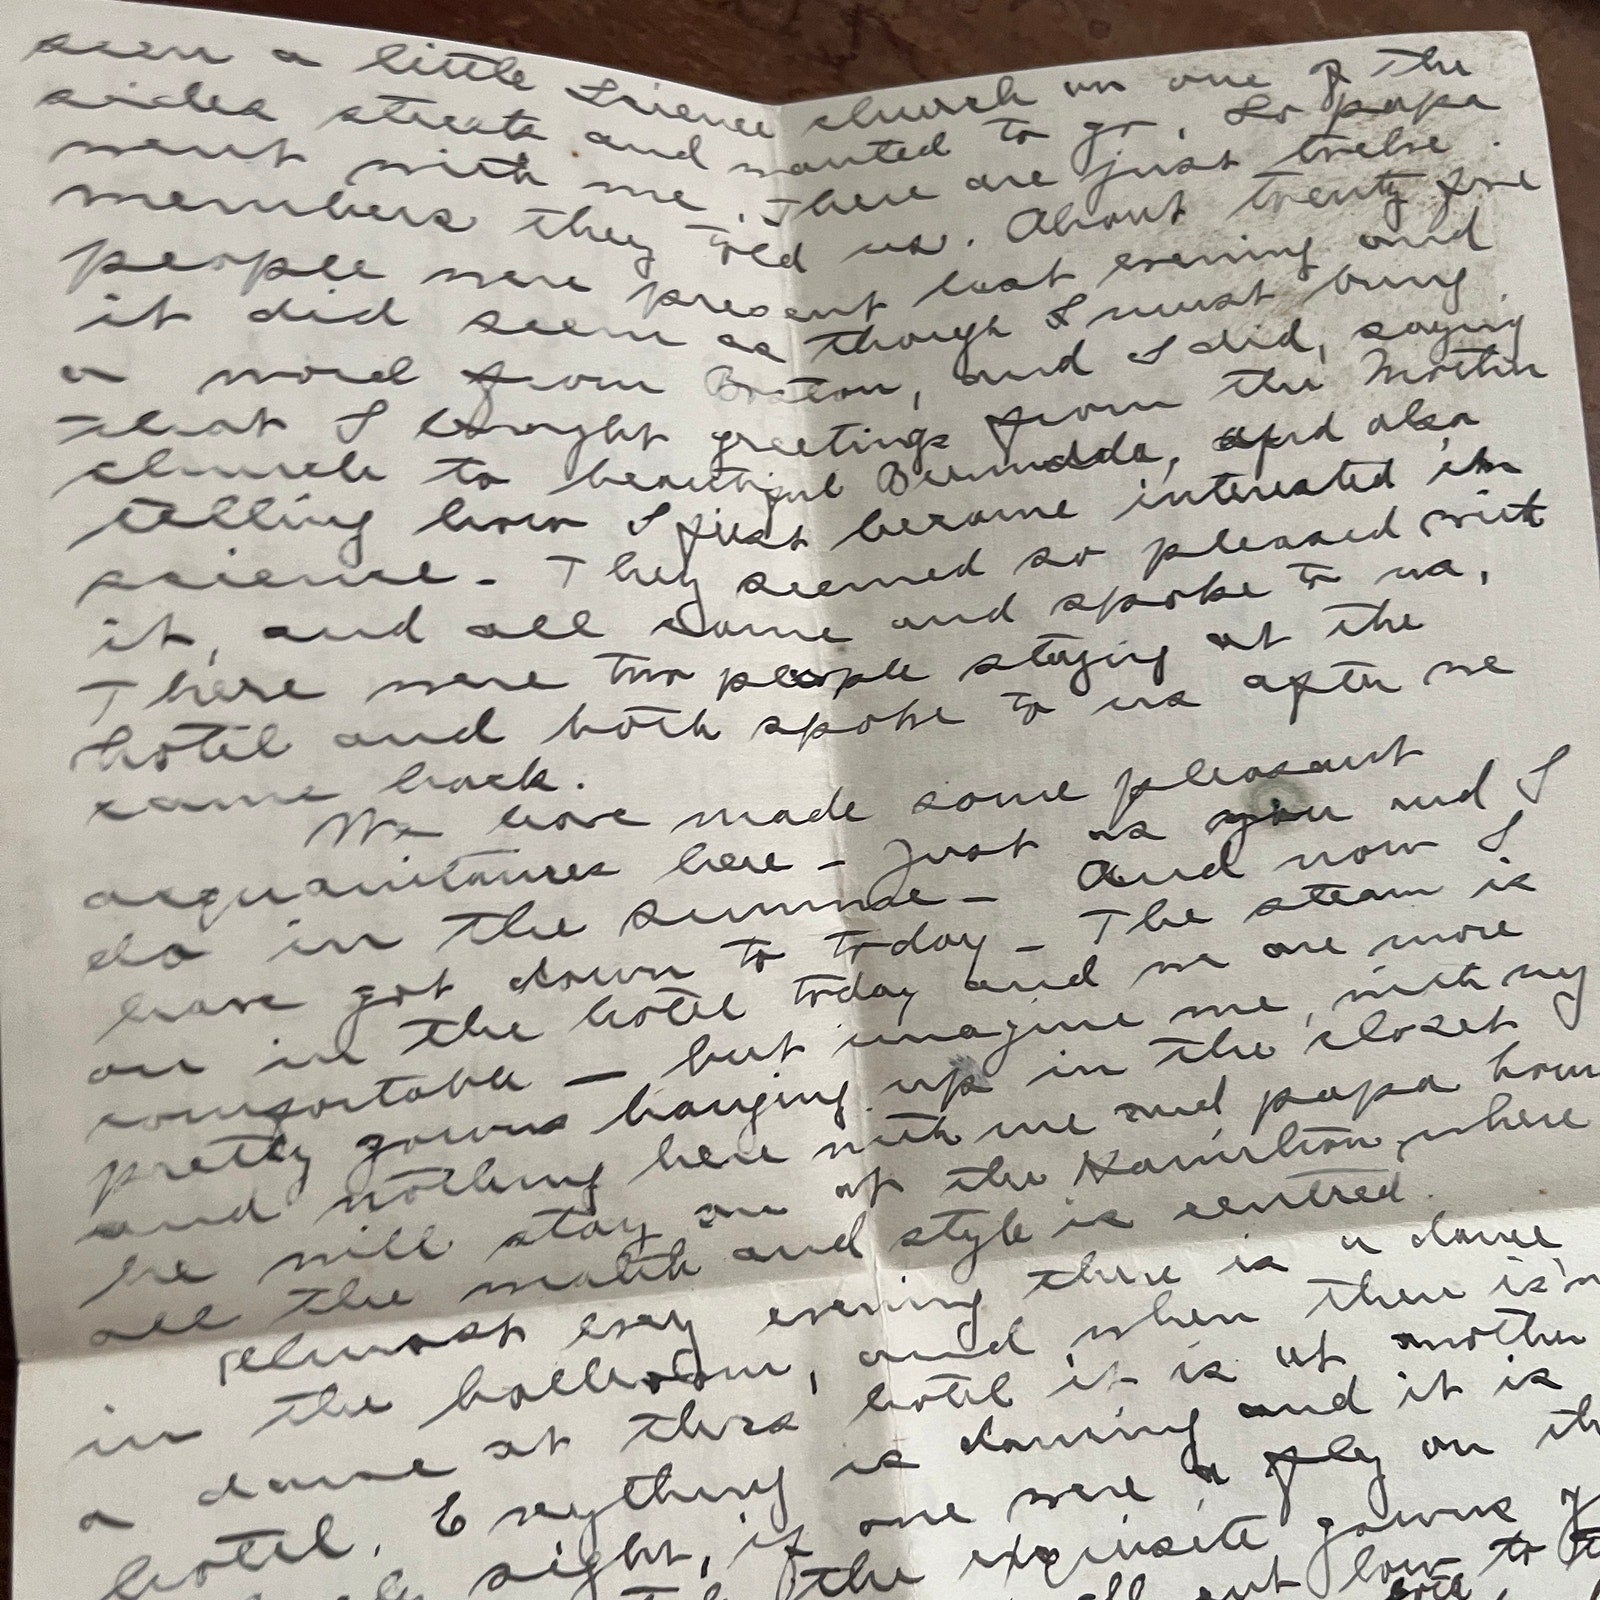 seen a little Science church on one of the
sides streets and wanted to go. So papa
went with me. There are just twelve
members they told us. About twenty five
people were present last evening and
it did seem as though I must bring
a word from Boston, and I did, saying
that I brought greetings from the Mother
church to beautiful Bermudda, and also
telling how I first became interested in
science - They seemed so pleased with
it, and all came and spoke to us,
There were two people staying at the
hotel and both spoke to us after we
came back.
We have made some pleasant
acquaintances here - Just as you and I
do in the summe - And now I
have got down to today - The steam is
on in the hotel today and we are more
comfortable - but imagine me, with my
pretty gowns hanging up in the closet
and nothing here with me and papa how
he will stay on at the Hamilton, where
all the wealth and style is centred.
Almost evey evening there is a dance
in the ballroom, and when there is'n
a dance at this hotel it is at another
hotel. Everything is dancing and it is
sight, if one were a fly on th
the exquisite gowns
out low to